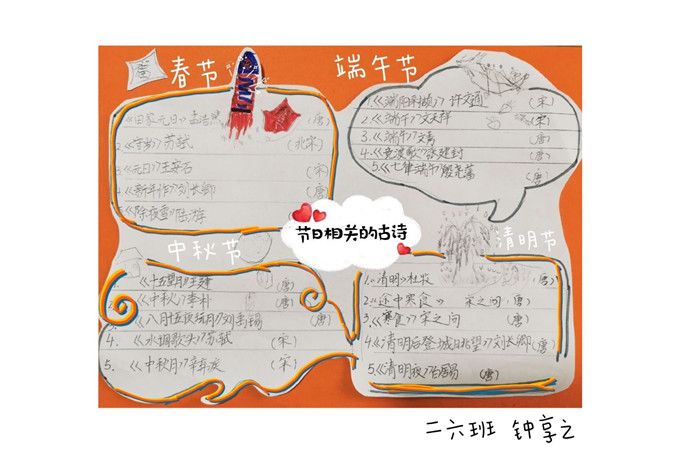 春节
《田家元日》孟浩然 (唐)
2.《守岁》苏轼 (北宋)
《元日》王安石 (宋)
4.《新年作》刘长卿 (唐)
《除夜雪》陆游
端午节
1.《端阳采撷》 许交通 (宋)
2.《端午》文天祥 (宋)
3.《端午》文秀 (唐)
4.《竞渡歌》张建封 (唐)
5.《七律端午》殷尧藩 (唐)
节日相关的古诗
中秋节
《十五望月》王建 (唐)
《中秋》李朴 (唐)
《八月十五夜玩月》刘禹锡 (唐)
4. 《水调歌头》苏轼 (宋)
5. 《中秋月》 (宋)
清明节
1.《清明》杜牧 (唐)
2.《途中寒食》 宋之问 (唐)
3.《寒食》宋之问 (唐)
4.《清明后登城眺望》刘长卿(唐)
5.《清明夜》白居易 (唐)
二六班 钟享之